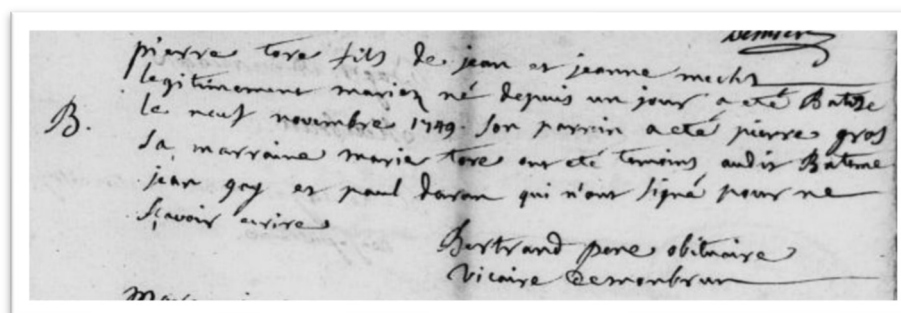 pierre tore fils de jean et jeanne mechs
legitimement mariez né depuis un jour a eté Batize
B. le neuf novembre 1749. son parrin a eté pierre gros
sa marraine marie tore ont eté temoins audit Bateme
jean gay et paul daran qui n'ont signé pour ne
sçavoir ecrire
Bertrand pene obituaire
vicaire demonbrun